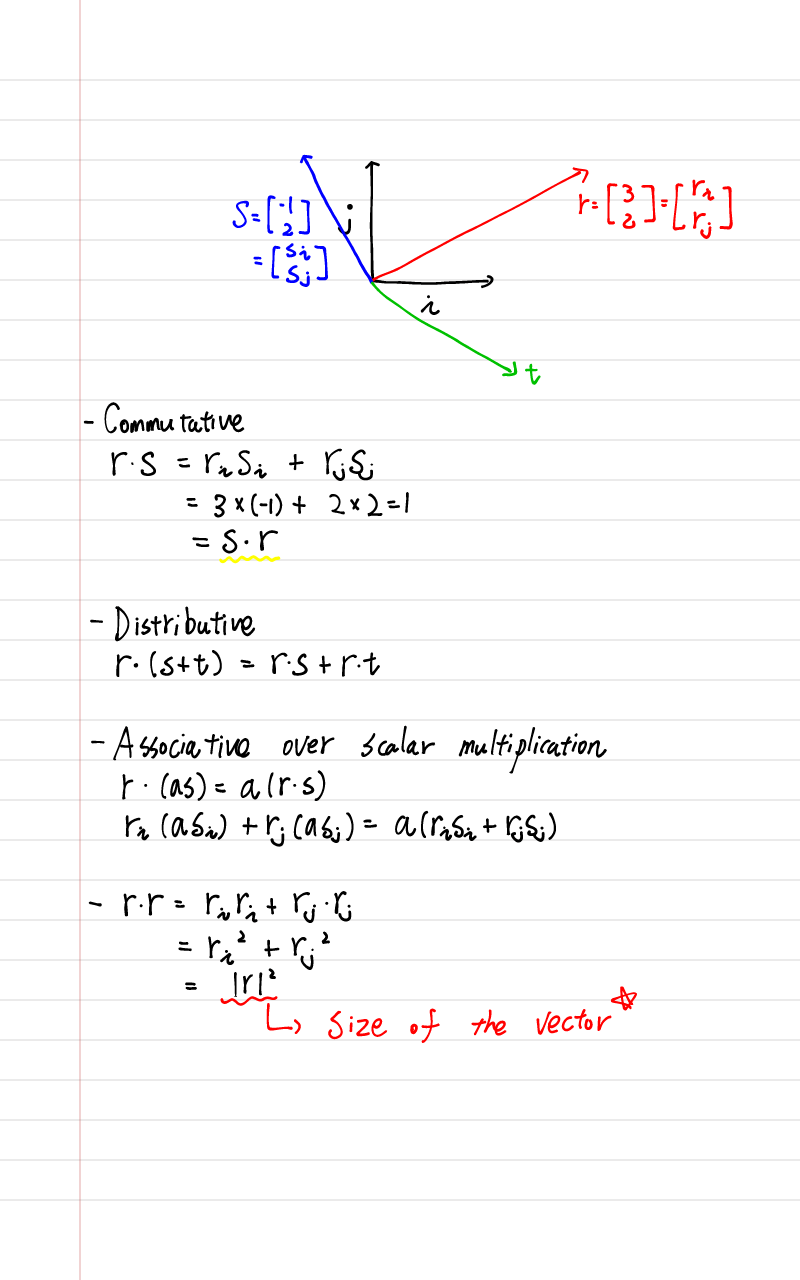 S = [-1 2]
= [si sj]
j
r = [3 2] = [ri rj]
i
t
- Commutative
r·s = risi + rjsj
= 3×(-1) + 2×2=1
= s·r
- Distributive
r·(s+t) = r·s + r·t
- Associative over scalar multiplication
r·(as) = a(r·s)
ri(asi) + rj(asj) = a(risi + rjsj)
- r·r = riri + rj·rj
= ri² + rj²
= |r|²
↳ size of the vector ☆